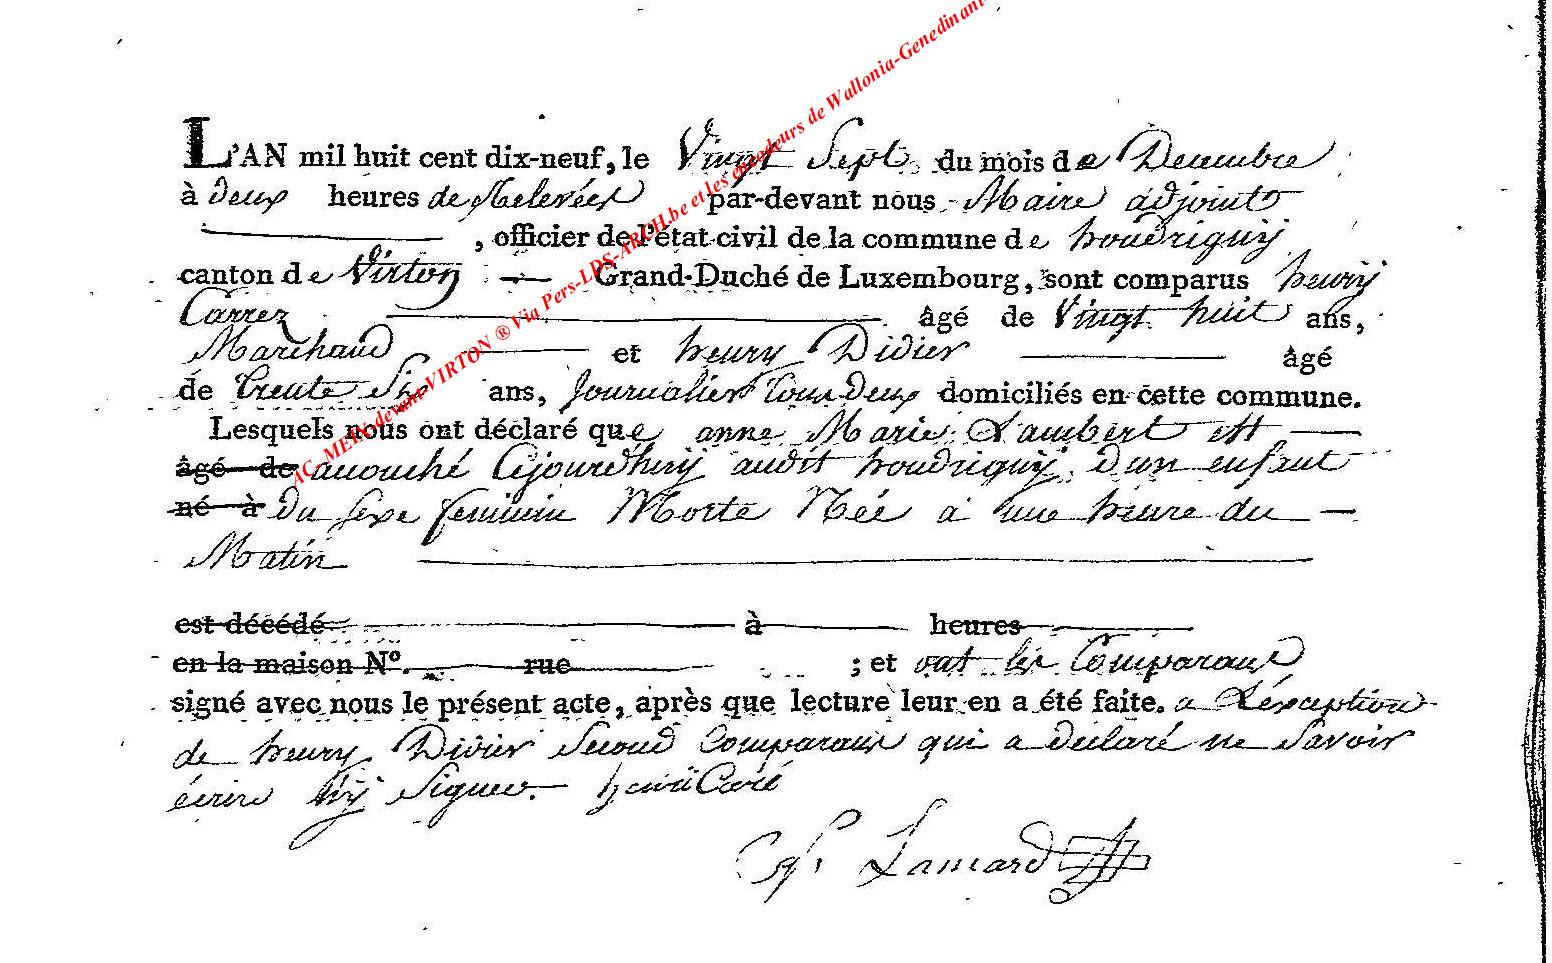 L'AN mil huit cent dix-neuf, le Vingt Sept du mois de Decembre
à deux heures de Relevées par-devant nous Maire adjoint
, officier de l'état civil de la commune de houdrigny
canton de Virton Grand-Duché de Luxembourg, sont comparus henry
Carrez âgé de Vingt huit ans,
Marchand et henry Didier âgé
de trente Six ans, Journalier tous deux domiciliés en cette commune.
Lesquels nous ont déclaré que anne Marie Lambert est
âgé de accouché Cejourdhuy audit houdrigny d'un enfant
né à du sexe feminin Morte Née à une heure du
Matin
est décédé à heures
en la maison N°. rue ; et ont les Comparans
signé avec nous le présent acte, après que lecture leur en a été faite. a Léxception
de henry Didier Second Comparans qui a declaré ne Savoir
écrire ny Signer. henri Caré
Lamard
AC_MEIX-devant-VIRTON ® Via Pers-LDS-ARCH.be et les encodeurs de Wallonia-Genedinant